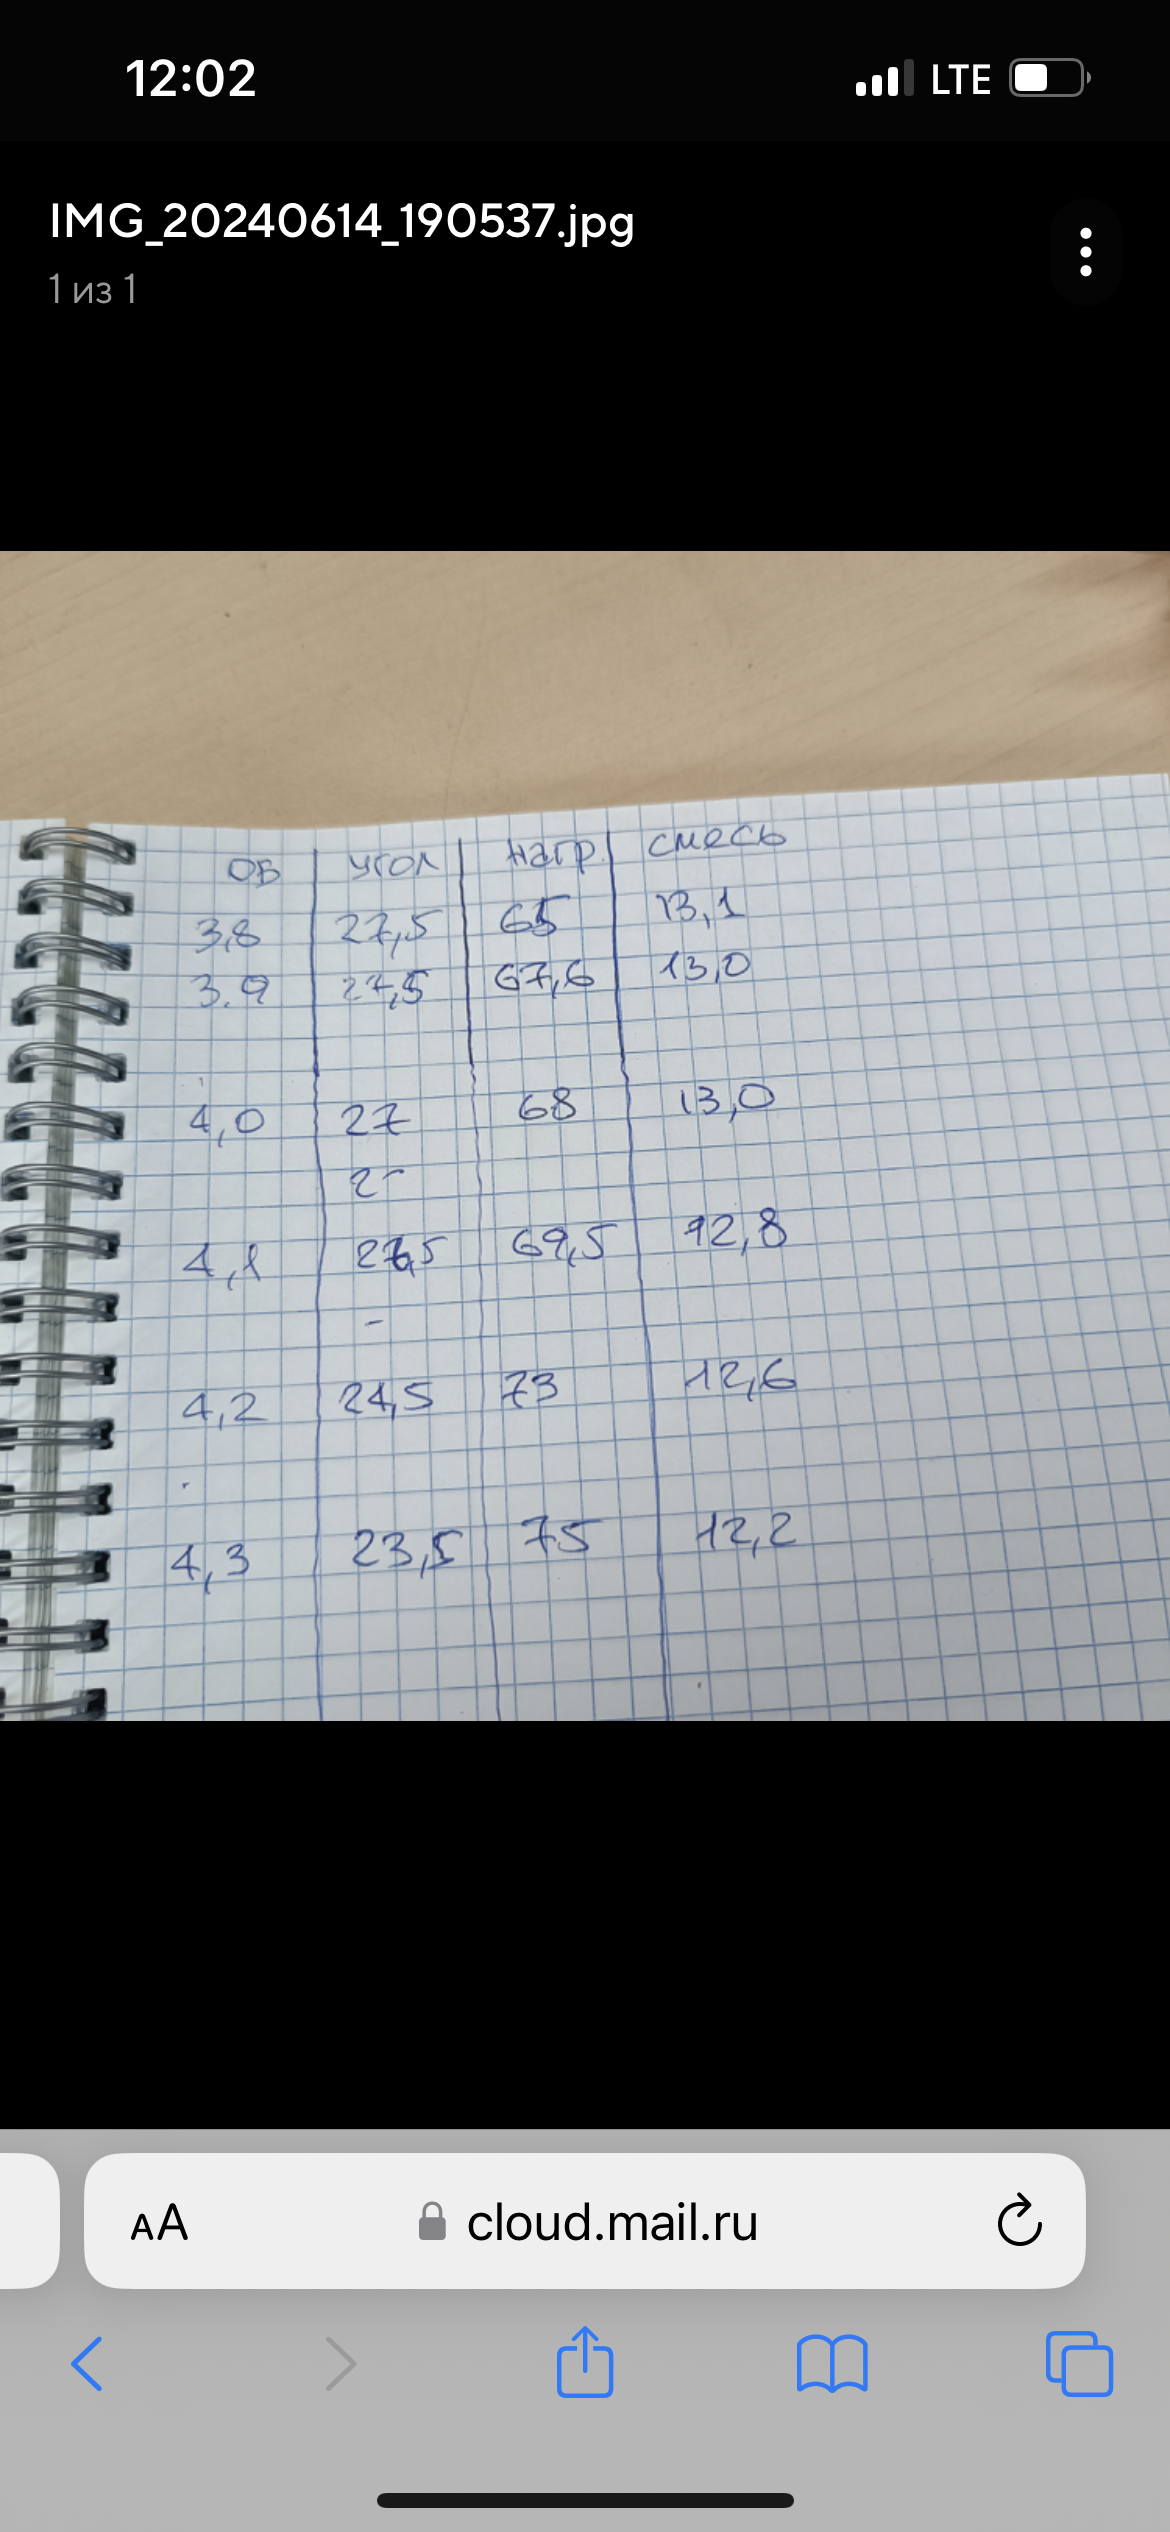 12:02 LTE
IMG_20240614_190537.jpg
1 из 1
ОБ угол нагр. смесь
3,8 27,5 65 13,1
3.9 27,5 67,6 13,0
4,0 27 68 13,0
2-
4,1 26,5 69,5 12,8
-
4,2 24,5 73 12,6
4,3 23,5 75 12,2
AA cloud.mail.ru